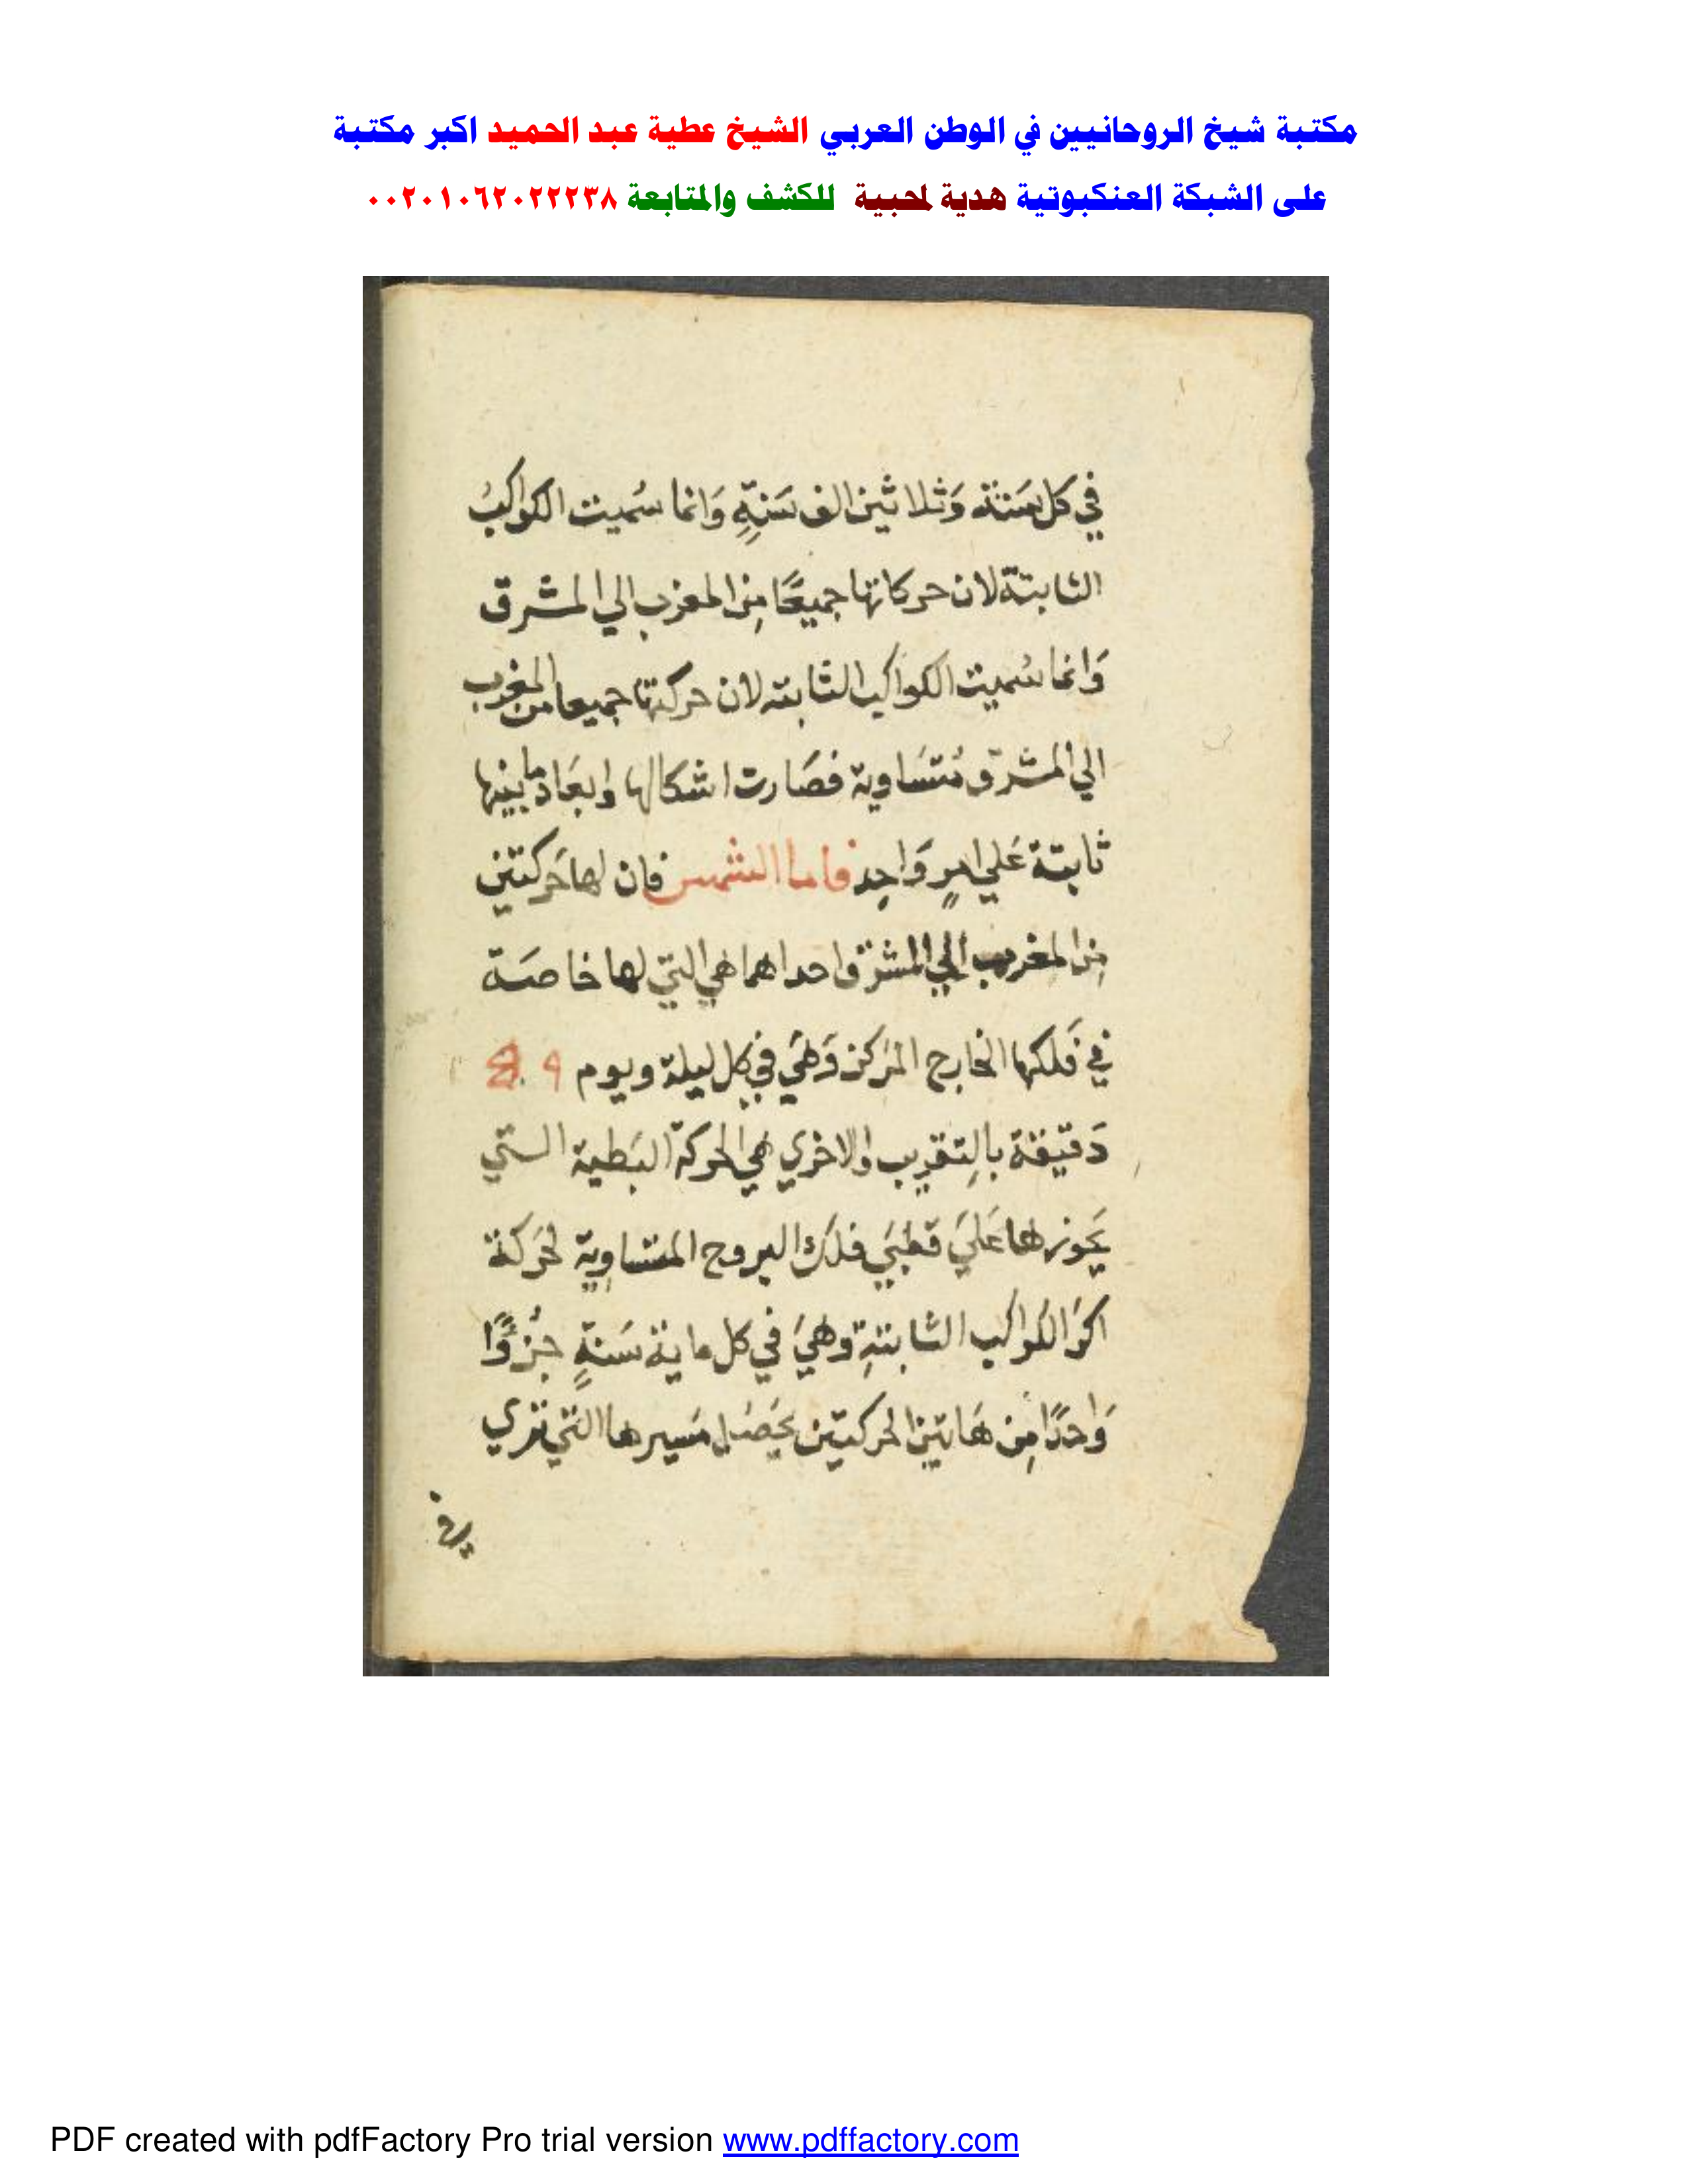 مكتبة شيخ الروحانيين في الوطن العربي الشيخ عطية عبد الحميد اكبر مكتبة
على الشبكة العنكبوتية هدية لمحبية للكشف والمتابعة ٠٠٢٠١٠٦٢٠٢٢٢٣٨
في كل سنتة وَثلاثين الف سَنةٍ وَانما سُميت الكواكبُ
الثابتة لان حركاتها جميعًا مِن المغرب الي المشرق
وَانما سُميت الكواكب الثابته لان حركتها جميعا من المغرب
الي المشرق مُتسَاوية فصَارت اشكالها وابعَاد ما بينها
ثابتة عَلي امرٍ وَاحِد فاما الشمس فان لها حَركتين
مِن المغرب الي المشرق احداهما هي التي لها خاصَة
في فَلكها الخارج المَركز وَهيَ في كل ليلة ويوم
دَقيقة بالتقريب والاخري هي الحركة البَطية التي
عَليَ قطبَي فلك البروج المتساوية لحَركة
اكرَ الكواكب الثابتةِ وهيَ في كل ماية سَنةٍ جُزوًا
وَاحدًا مِن هَاتين الحركتين يحَصُل مَسيرها التي تري
في
PDF created with pdfFactory Pro trial version www.pdffactory.com